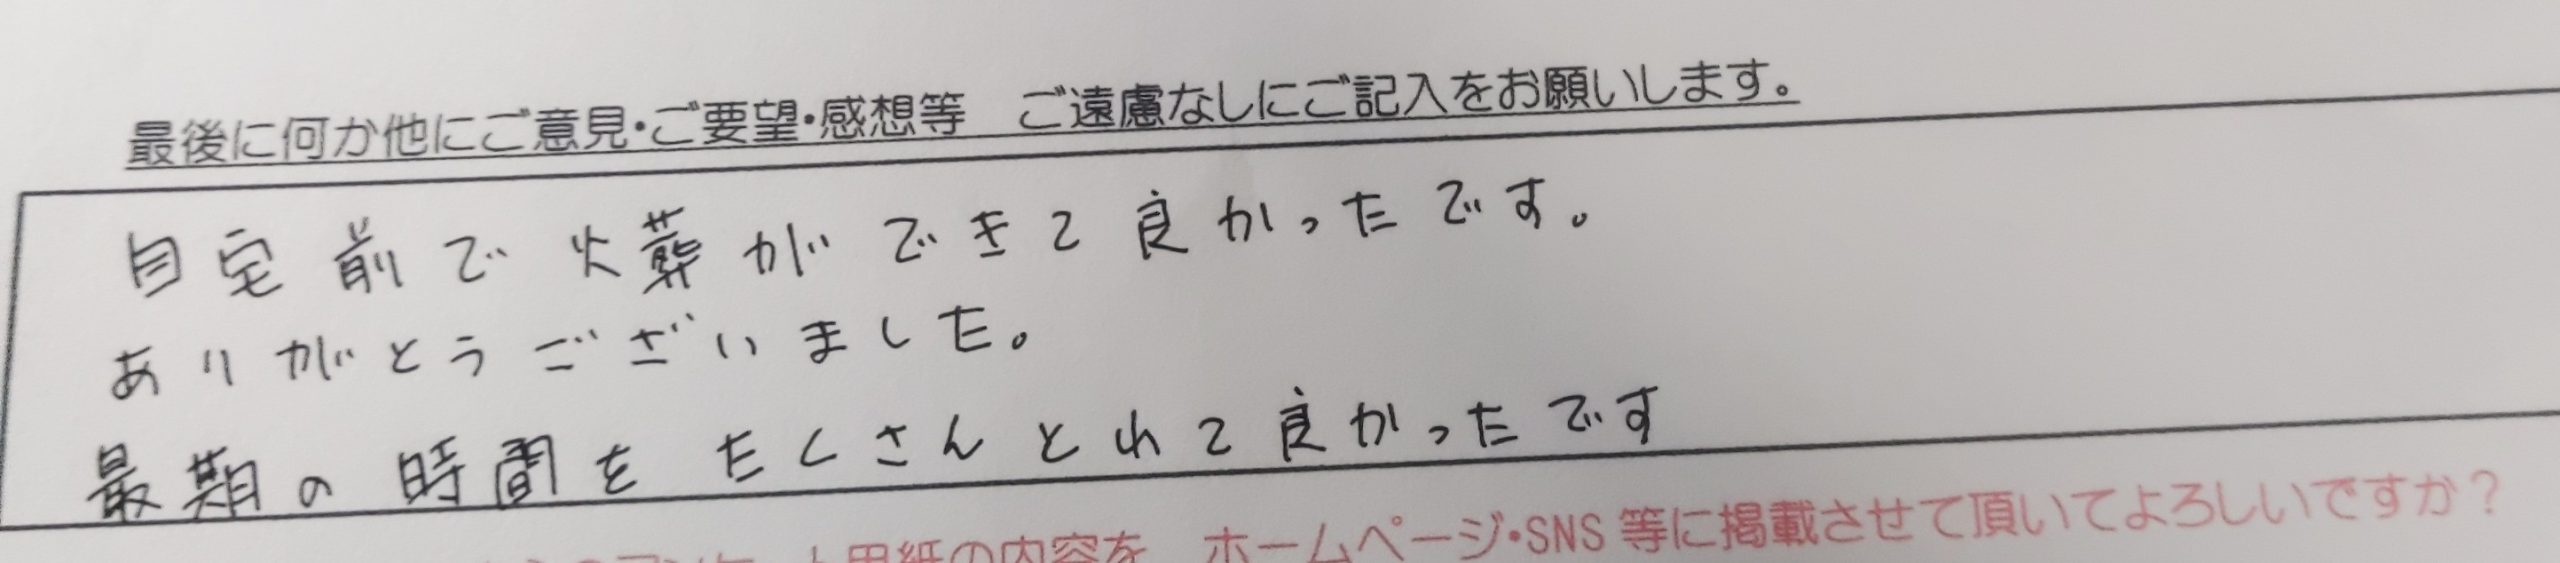 最後に何か他にご意見・ご要望・感想等　ご遠慮なしにご記入をお願いします。
自宅前で火葬ができて良かったです。
ありがとうございました。
最期の時間をたくさんとれて良かったです
用紙の内容を　ホームページ・SNS 等に掲載させて頂いてよろしいですか？